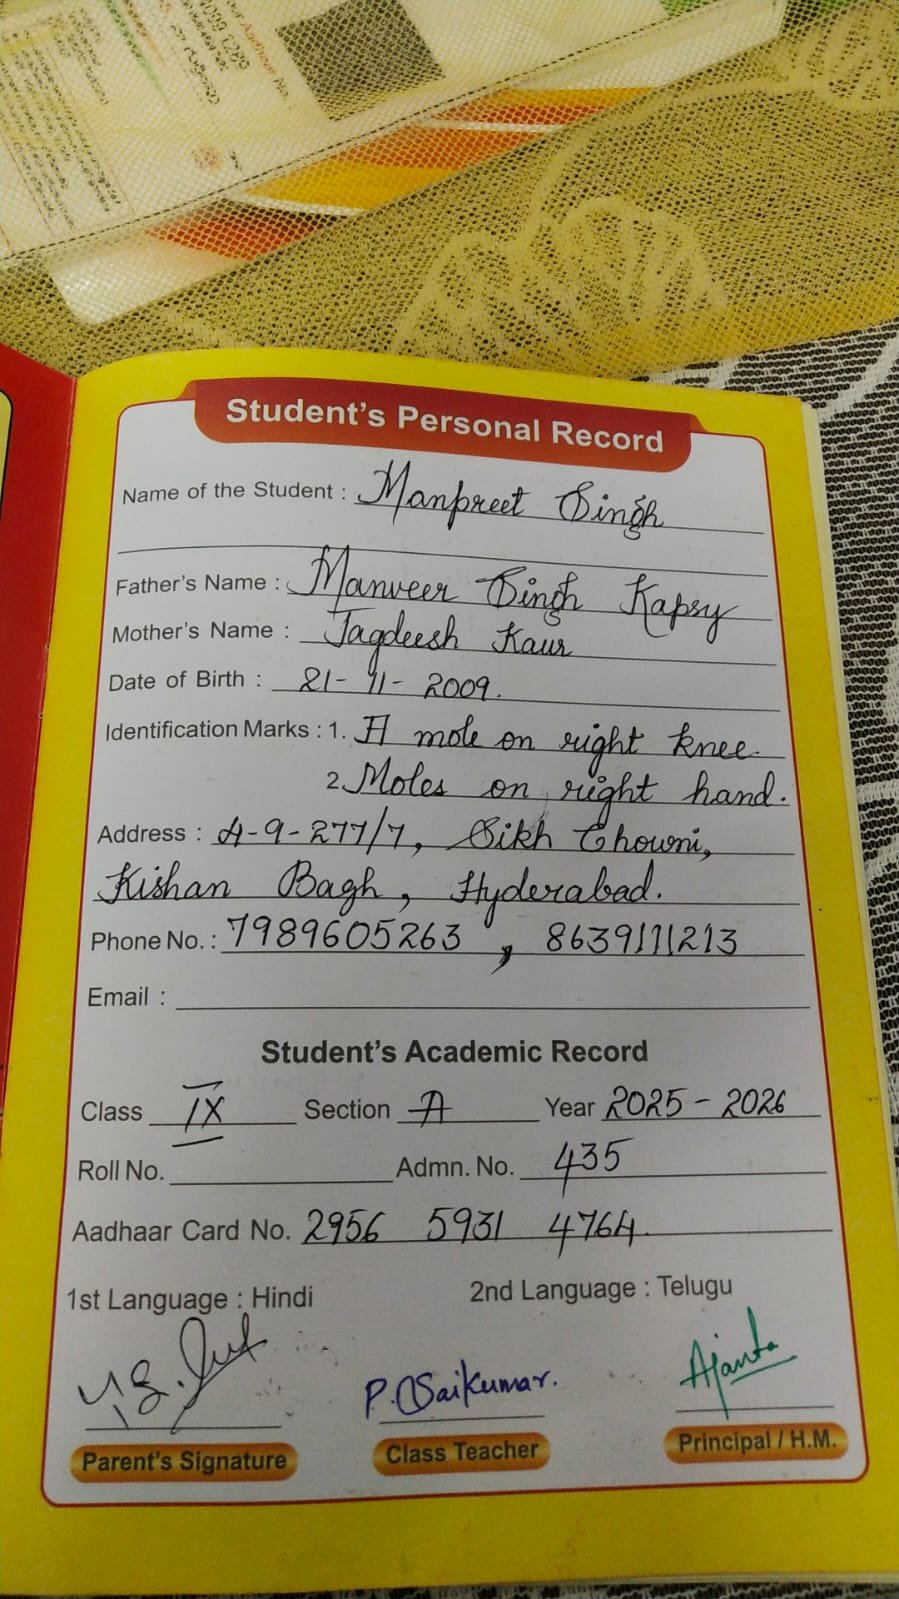 Student's Personal Record
Name of the Student : Manpreet Singh
Father's Name : Manveer Singh Kapsy
Mother's Name : Jagdeesh Kaur
Date of Birth : 21-11-2009.
Identification Marks : 1. A mole on right knee.
2. Moles on right hand.
Address : 4-9-277/7, Sikh Chowni,
Kishan Bagh, Hyderabad.
Phone No. : 7989605263 , 8639111213
Email :
Student's Academic Record
Class IX Section A Year 2025-2026
Roll No. Admn. No. 435
Aadhaar Card No. 2956 5931 4764
1st Language : Hindi 2nd Language : Telugu
P. Saikumar. Ajanta
Parent's Signature Class Teacher Principal / H.M.